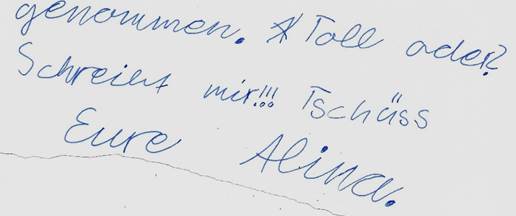 genommen. Toll oder?
Schreibt mir!!! Tschüss
Eure Alina.